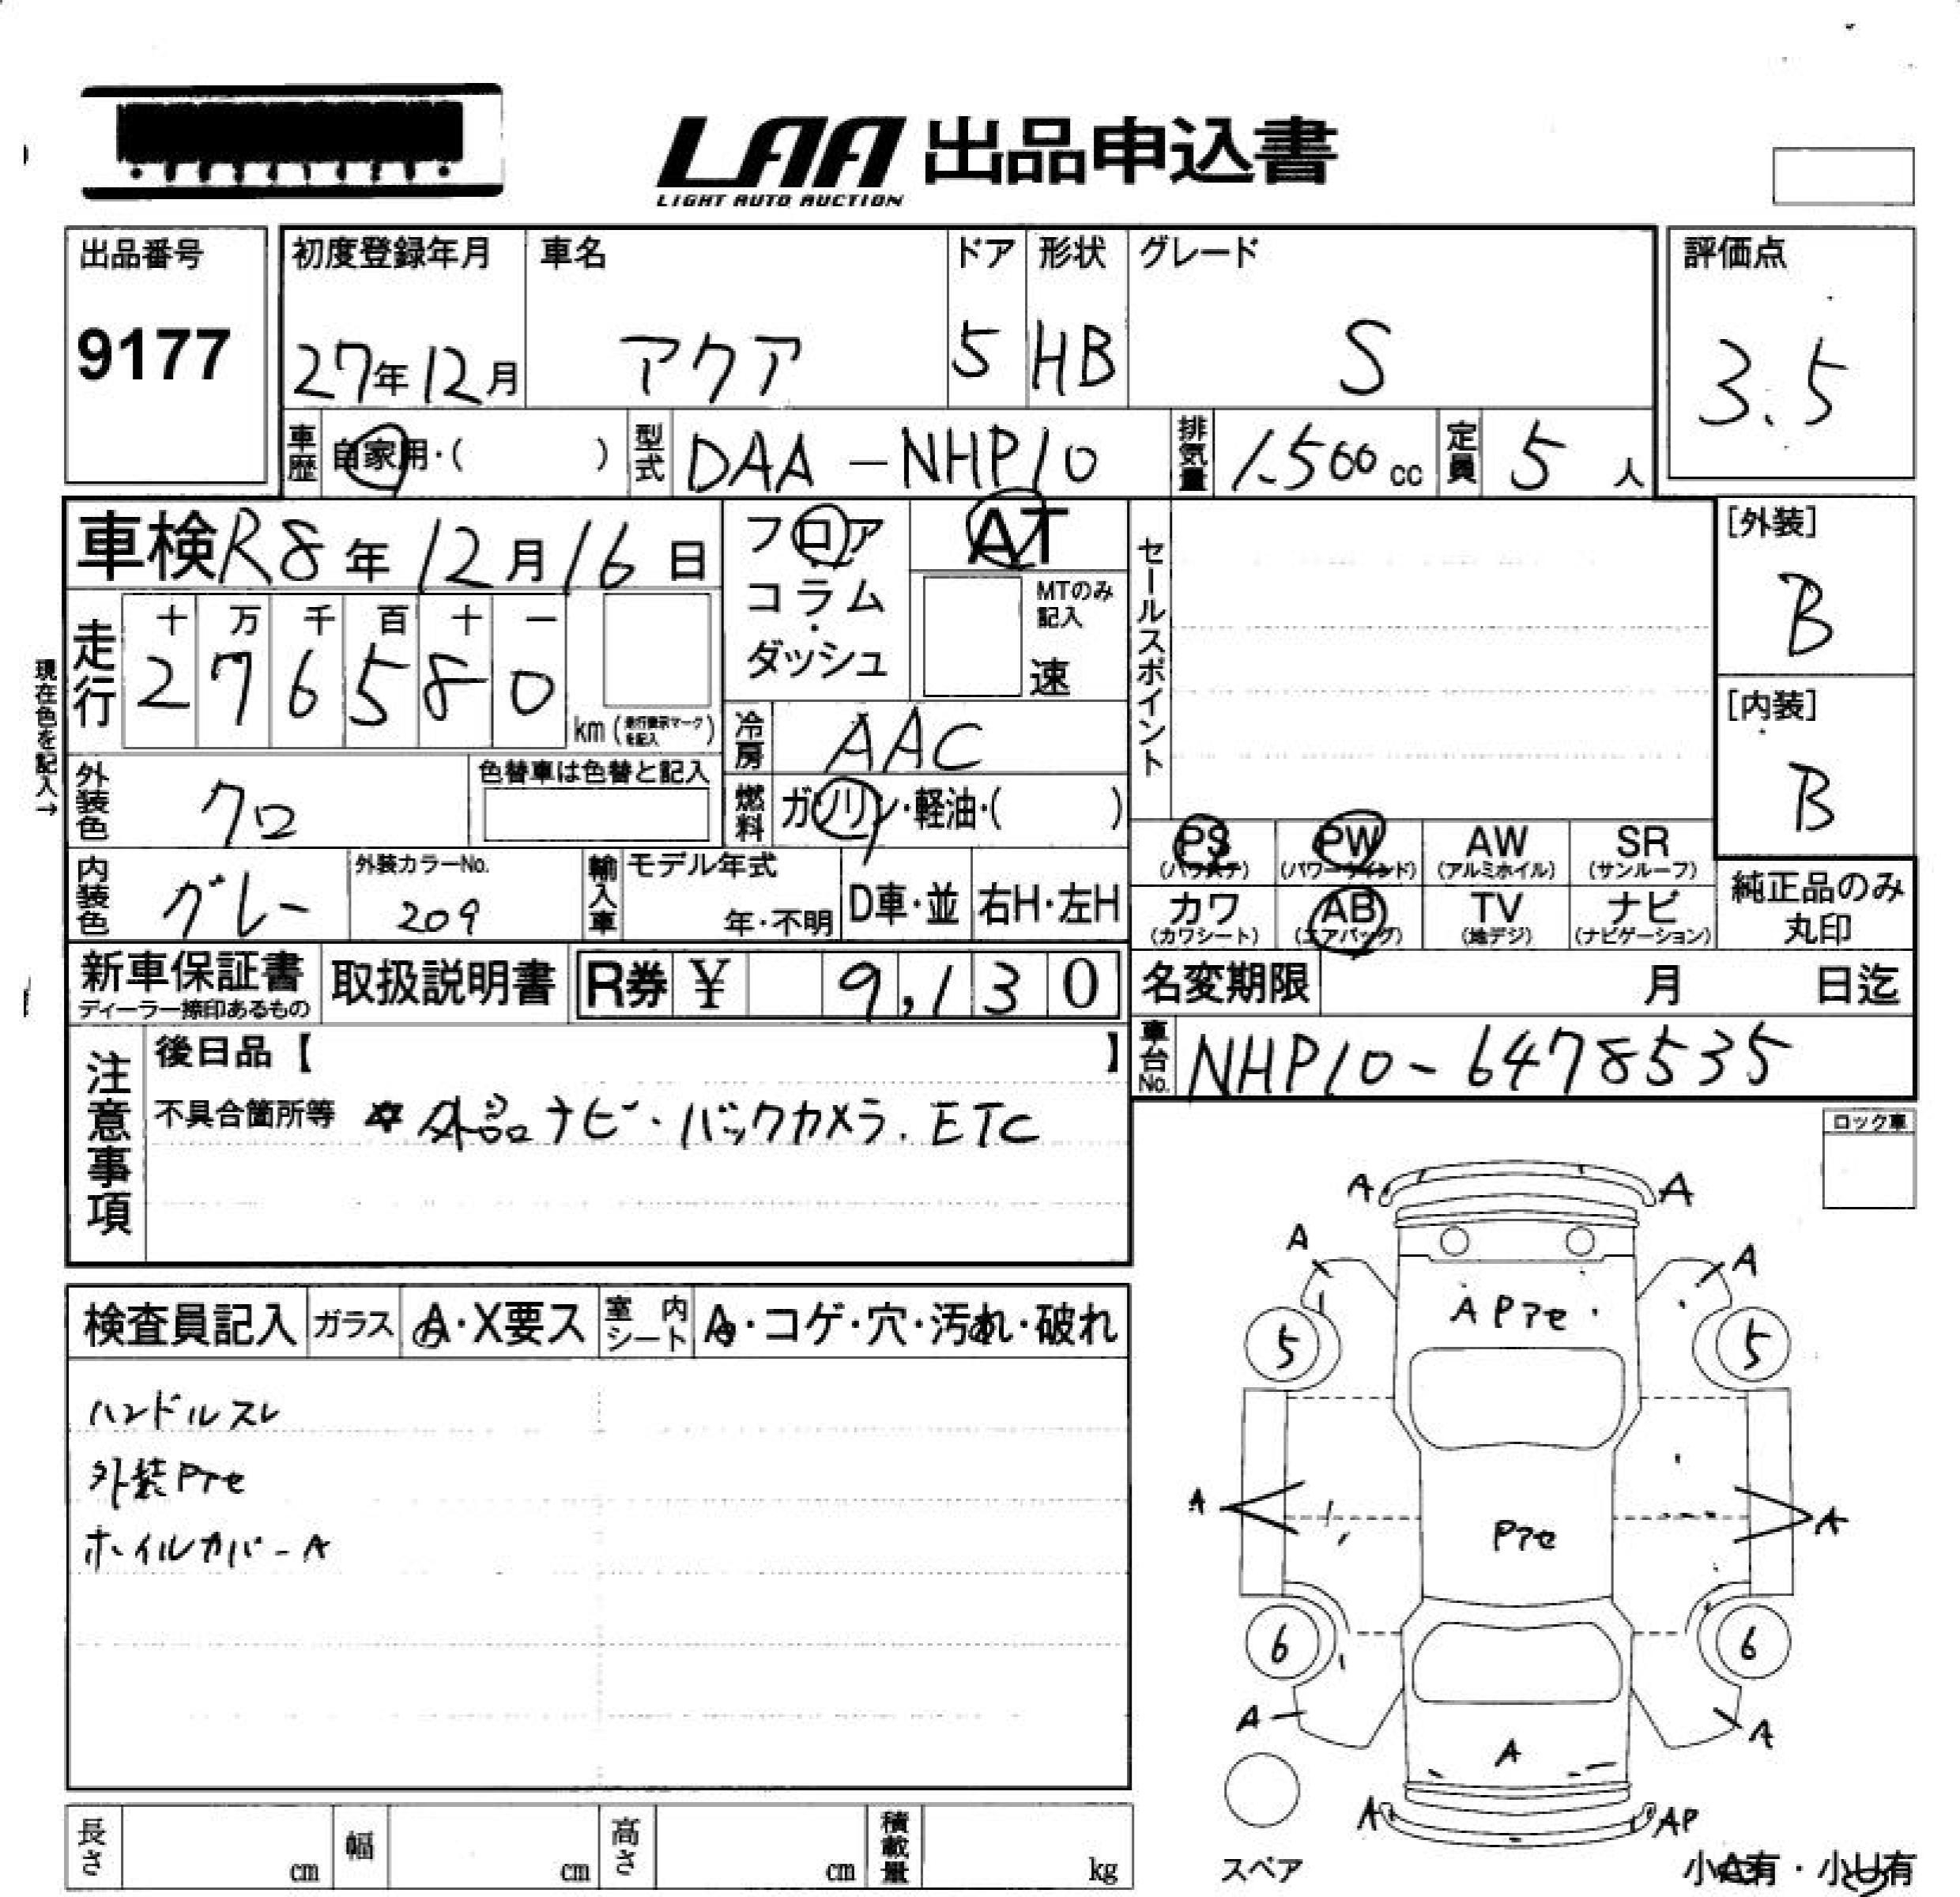 LAA 出品申込書
LIGHT AUTO AUCTION
出品番号
9177
初度登録年月
27年12月
車名
アクア
ドア
5
形状
HB
グレード
S
評価点
3.5
車歴 自家用・( )
型式 DAA-NHP10
排気量 1500cc
定員 5人
車検 R8年12月16日
フロア
コラム
・
ダッシュ
AT
MTのみ
記入
速
セールスポイント
[外装]
B
[内装]
B
現在色を記入→
走行
十 万 千 百 十 一
2 7 6 5 8 0
km (走行表示マークを記入)
冷房 AAC
外装色 クロ
色替車は色替と記入
燃料 ガソリン・軽油・( )
内装色 グレー
外装カラーNo.
209
輸入車
モデル年式
年・不明
D車・並
右H・左H
PS
(パワステ)
PW
(パワーウインド)
AW
(アルミホイル)
SR
(サンルーフ)
カワ
(カワシート)
AB
(エアバッグ)
TV
(地デジ)
ナビ
(ナビゲーション)
純正品のみ
丸印
新車保証書
ディーラー捺印あるもの
取扱説明書
R券 ¥ 9,130
名変期限 月 日迄
車台No. NHP10-6478535
注意事項
後日品【 】
不具合箇所等 ☆外品ナビ・バックカメラ.ETC
ロック車
検査員記入
ガラス A・X要ス
室内シート A・コゲ・穴・汚れ・破れ
ハンドルスレ
外装Pアセ
ホイルカバーA
A A
A A
A Pアセ
5 5
A A
Pアセ
6 6
A A
A
A AP
スペア
小A有・小U有
長さ cm
幅 cm
高さ cm
積載量 kg